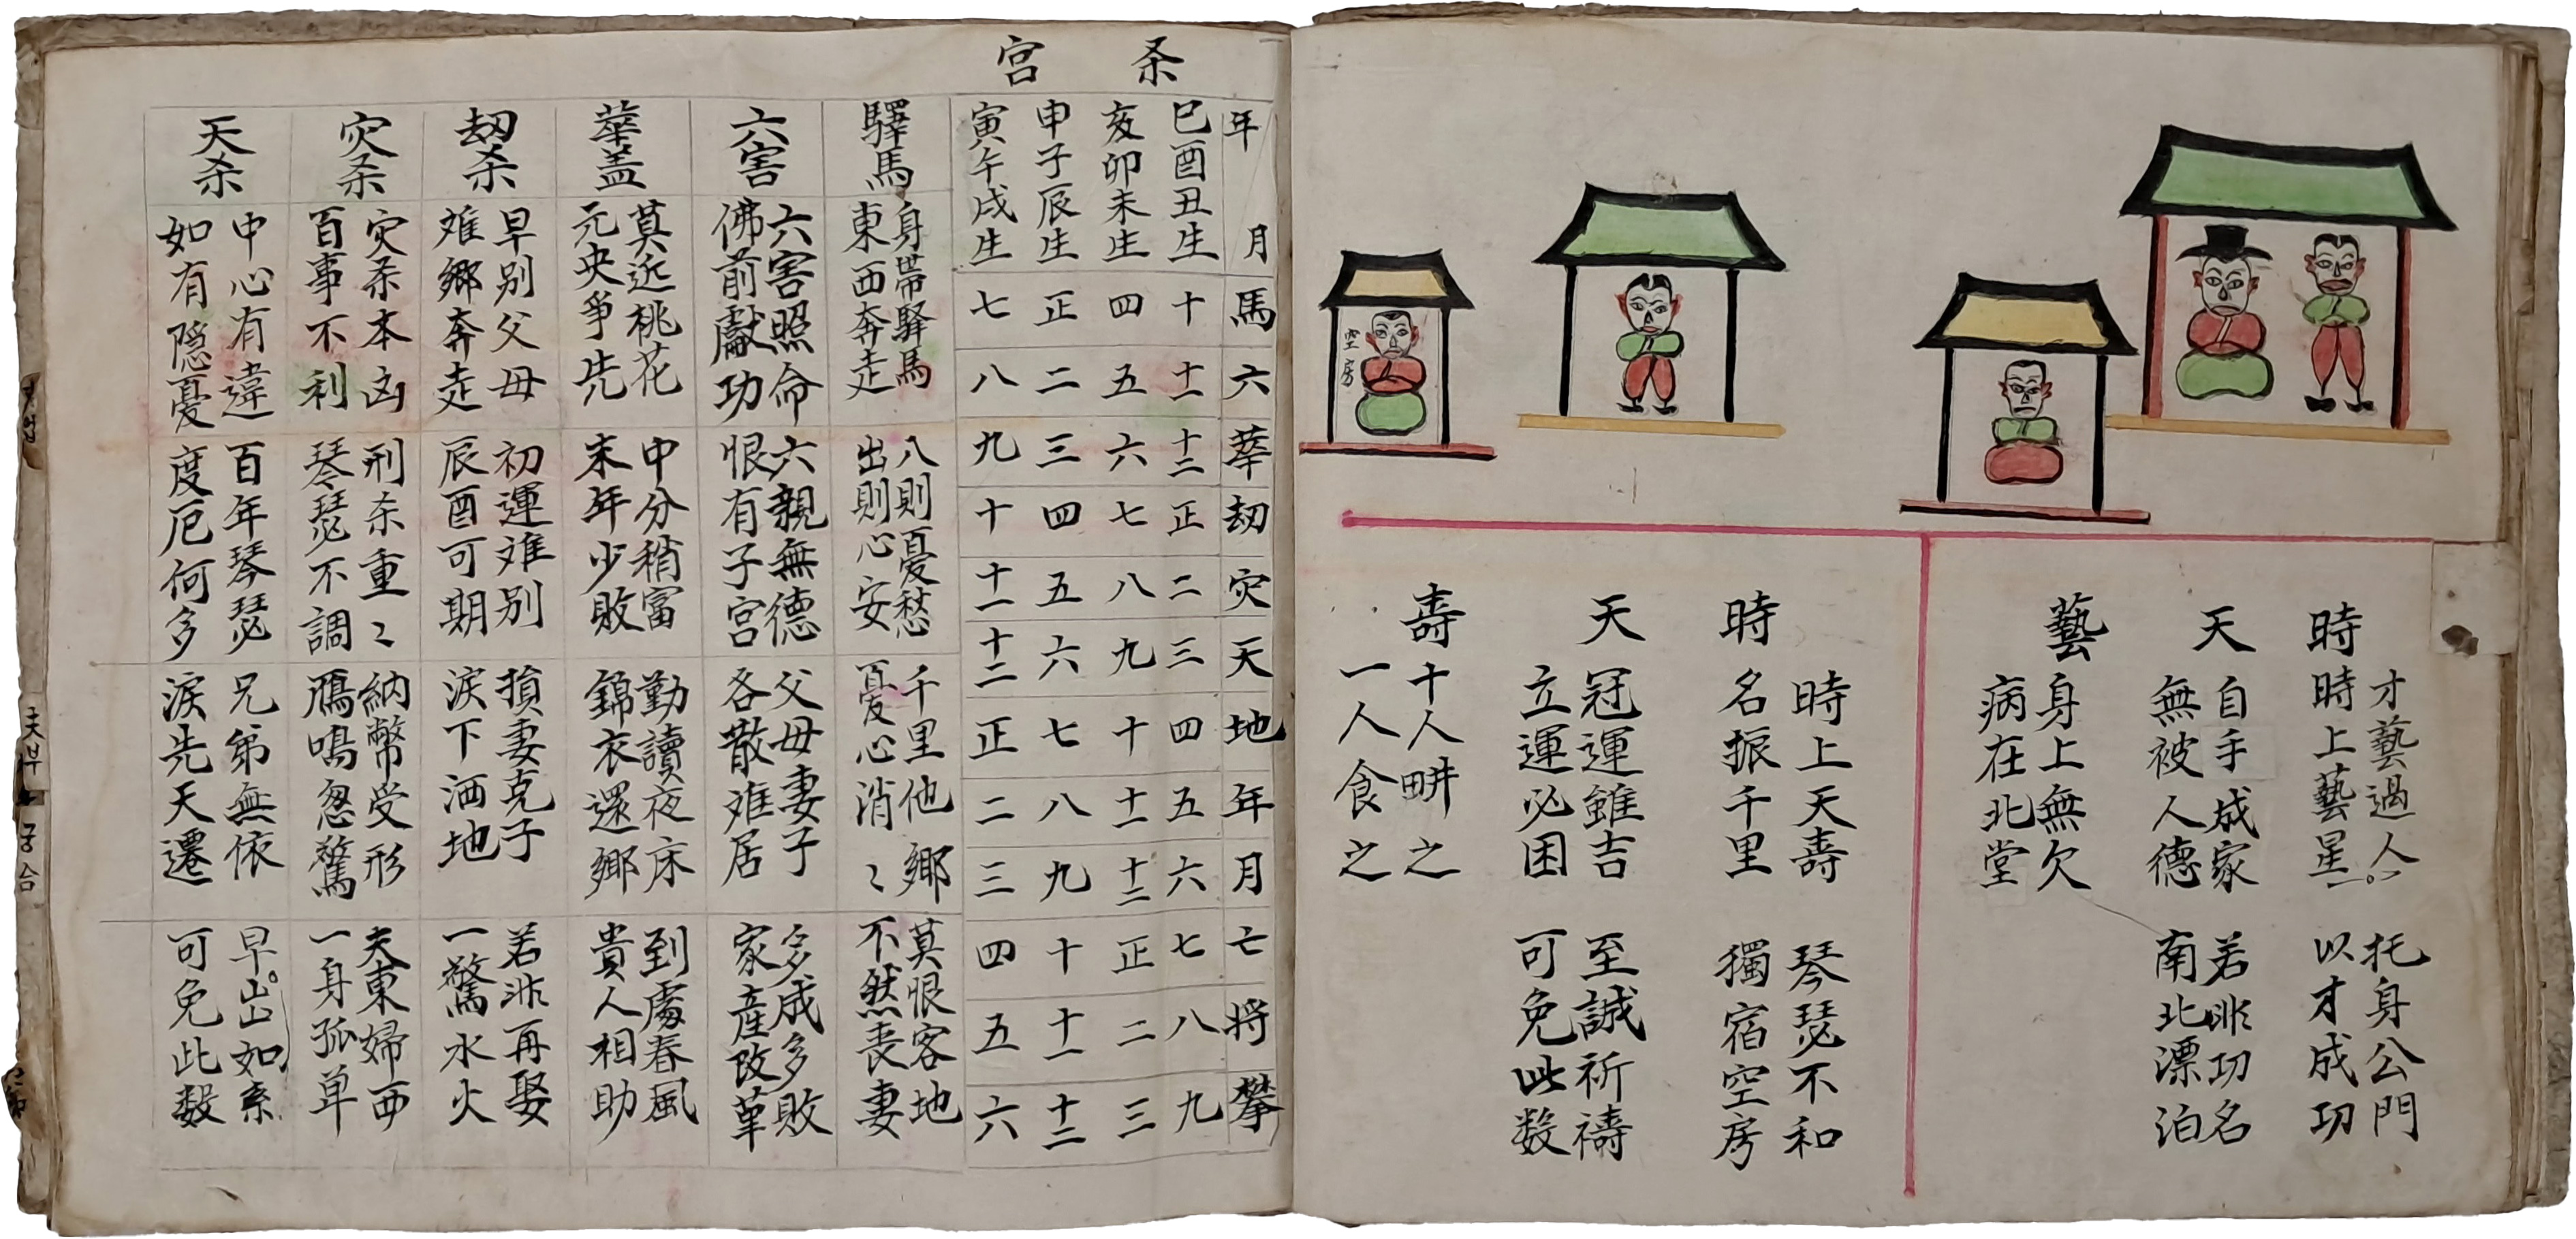 空房
時
才藝過人
時上藝星
托身公門
以才成功
天
自手成家
無被人德
若非功名
南北漂泊
藝
身上無欠
病在北堂
時
時上天壽
名振千里
琴瑟不和
獨宿空房
天
冠運雖吉
立運必困
至誠祈禱
可免此数
壽
十人畊之
一人食之
杀宮
年月 馬 六 華 劫 灾 天 地 年 月 亡 将 攀
巳酉丑生 十 十一 十二 正 二 三 四 五 六 七 八 九
亥卯未生 四 五 六 七 八 九 十 十一 十二 正 二 三
申子辰生 正 二 三 四 五 六 七 八 九 十 十一 十二
寅午戌生 七 八 九 十 十一 十二 正 二 三 四 五 六
驛馬
身帶驛馬
東西奔走
八則憂愁
出則心安
千里他鄉
憂心消〻
莫恨客地
不然喪妻
六害
六害照命
佛前獻功
六親無德
恨有子宮
父母妻子
各散难居
多成多敗
家産改革
華盖
莫近桃花
元央爭先
中分稍富
末年少敗
勤讀夜床
錦衣還鄉
到處春風
貴人相助
劫杀
早别父母
难鄉奔走
初運难别
辰酉可期
損妻克子
淚下洒地
若非再娶
一驚水火
灾杀
灾杀本凶
百事不利
刑杀重〻
琴瑟不調
納幣受形
鴈鳴忽驚
夫東婦西
一身孤单
天杀
中心有違
如有隠憂
百年琴瑟
度厄何多
兄弟無依
淚先天遷
早出如系
可免此数